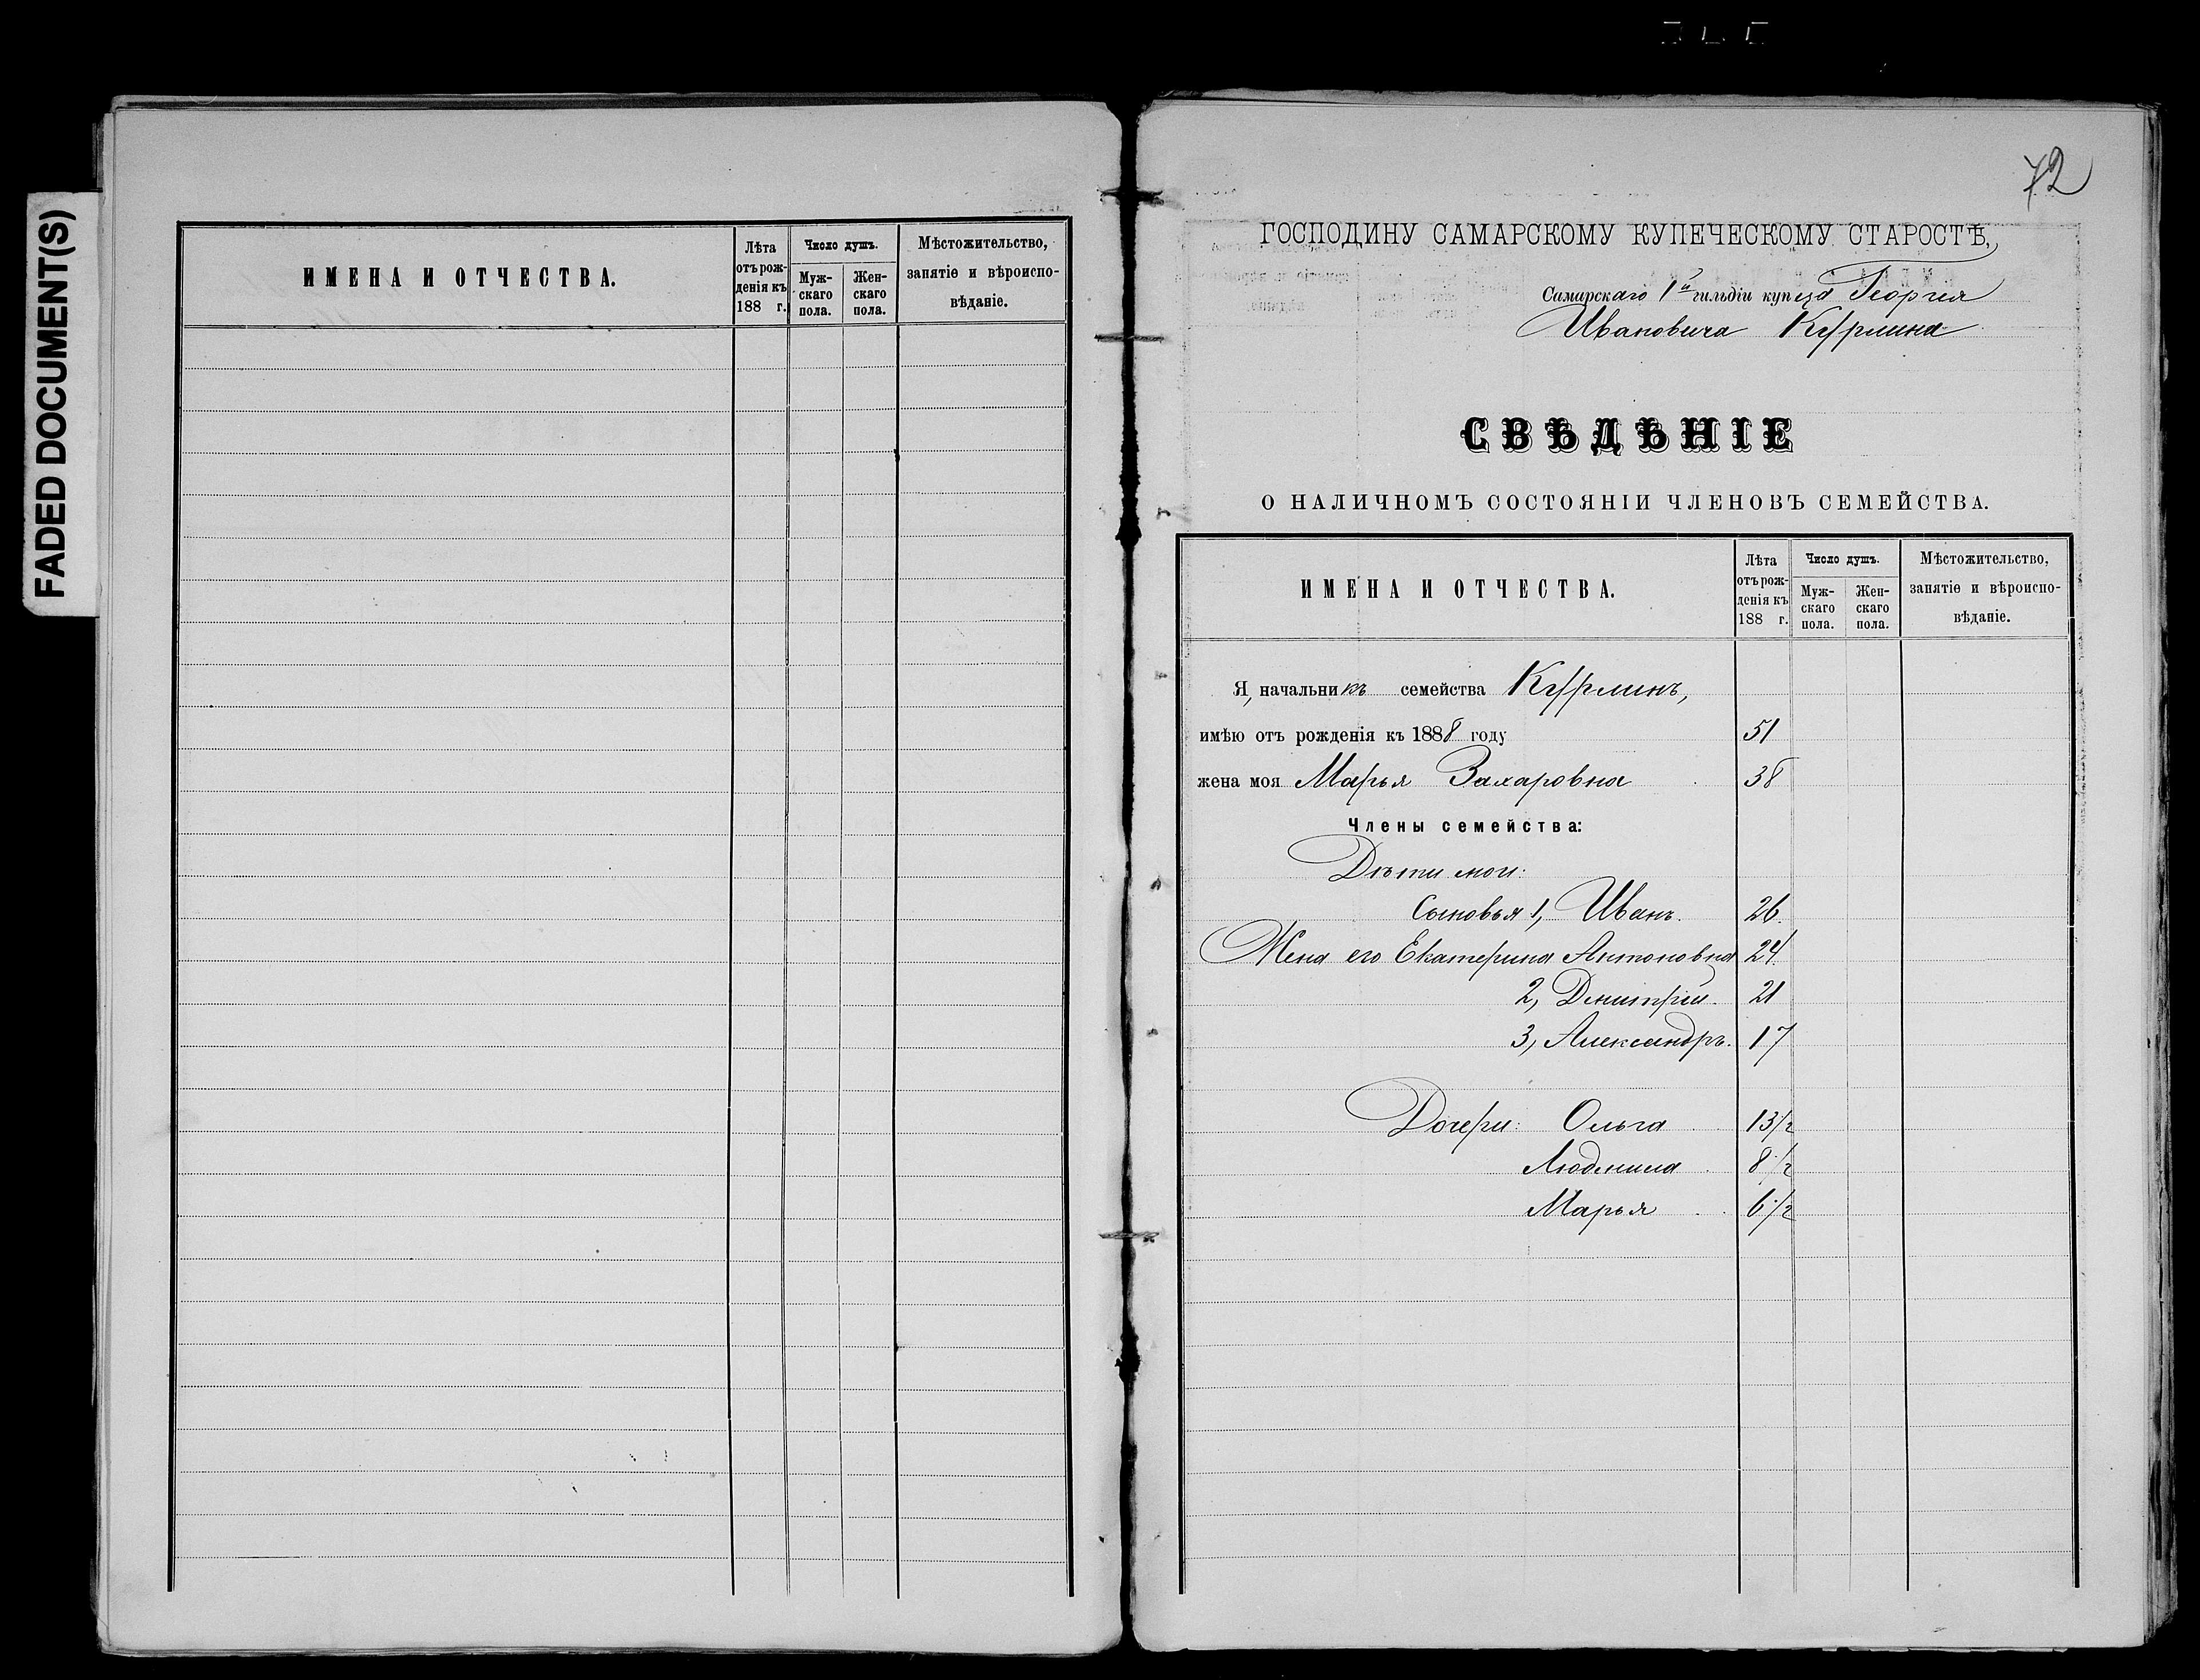 FADED DOCUMENT(S)
ИМЕНА И ОТЧЕСТВА.
Лѣта
отъ рож-
денія къ
188 г.
Число душъ.
Муж-
скаго
пола.
Жен-
скаго
пола.
Мѣстожительство,
занятіе и вѣроиспо-
вѣданіе.
72
ГОСПОДИНУ САМАРСКОМУ КУПЕЧЕСКОМУ СТАРОСТѢ,
Самарскаго 1й гильдіи купца Георгия
Ивановича Курлина
СВѢДѢНІЕ
О НАЛИЧНОМЪ СОСТОЯНІИ ЧЛЕНОВЪ СЕМЕЙСТВА.
ИМЕНА И ОТЧЕСТВА.
Лѣта
отъ рож-
денія къ
188 г.
Число душъ.
Муж-
скаго
пола.
Жен-
скаго
пола.
Мѣстожительство,
занятіе и вѣроиспо-
вѣданіе.
Я, начальникъ семейства Курлинъ,
имѣю отъ рожденія къ 1888 году 51
жена моя Марья Захаровна 38
Члены семейства:
Дѣти мои:
Сыновья 1, Иванъ. 26.
Жена его Екатерина Антоновна 24.
2, Дмитрій. 21
3, Александръ. 17
Дочери: Ольга 13 1/2
Людмила 8 1/2
Марья 6 1/2